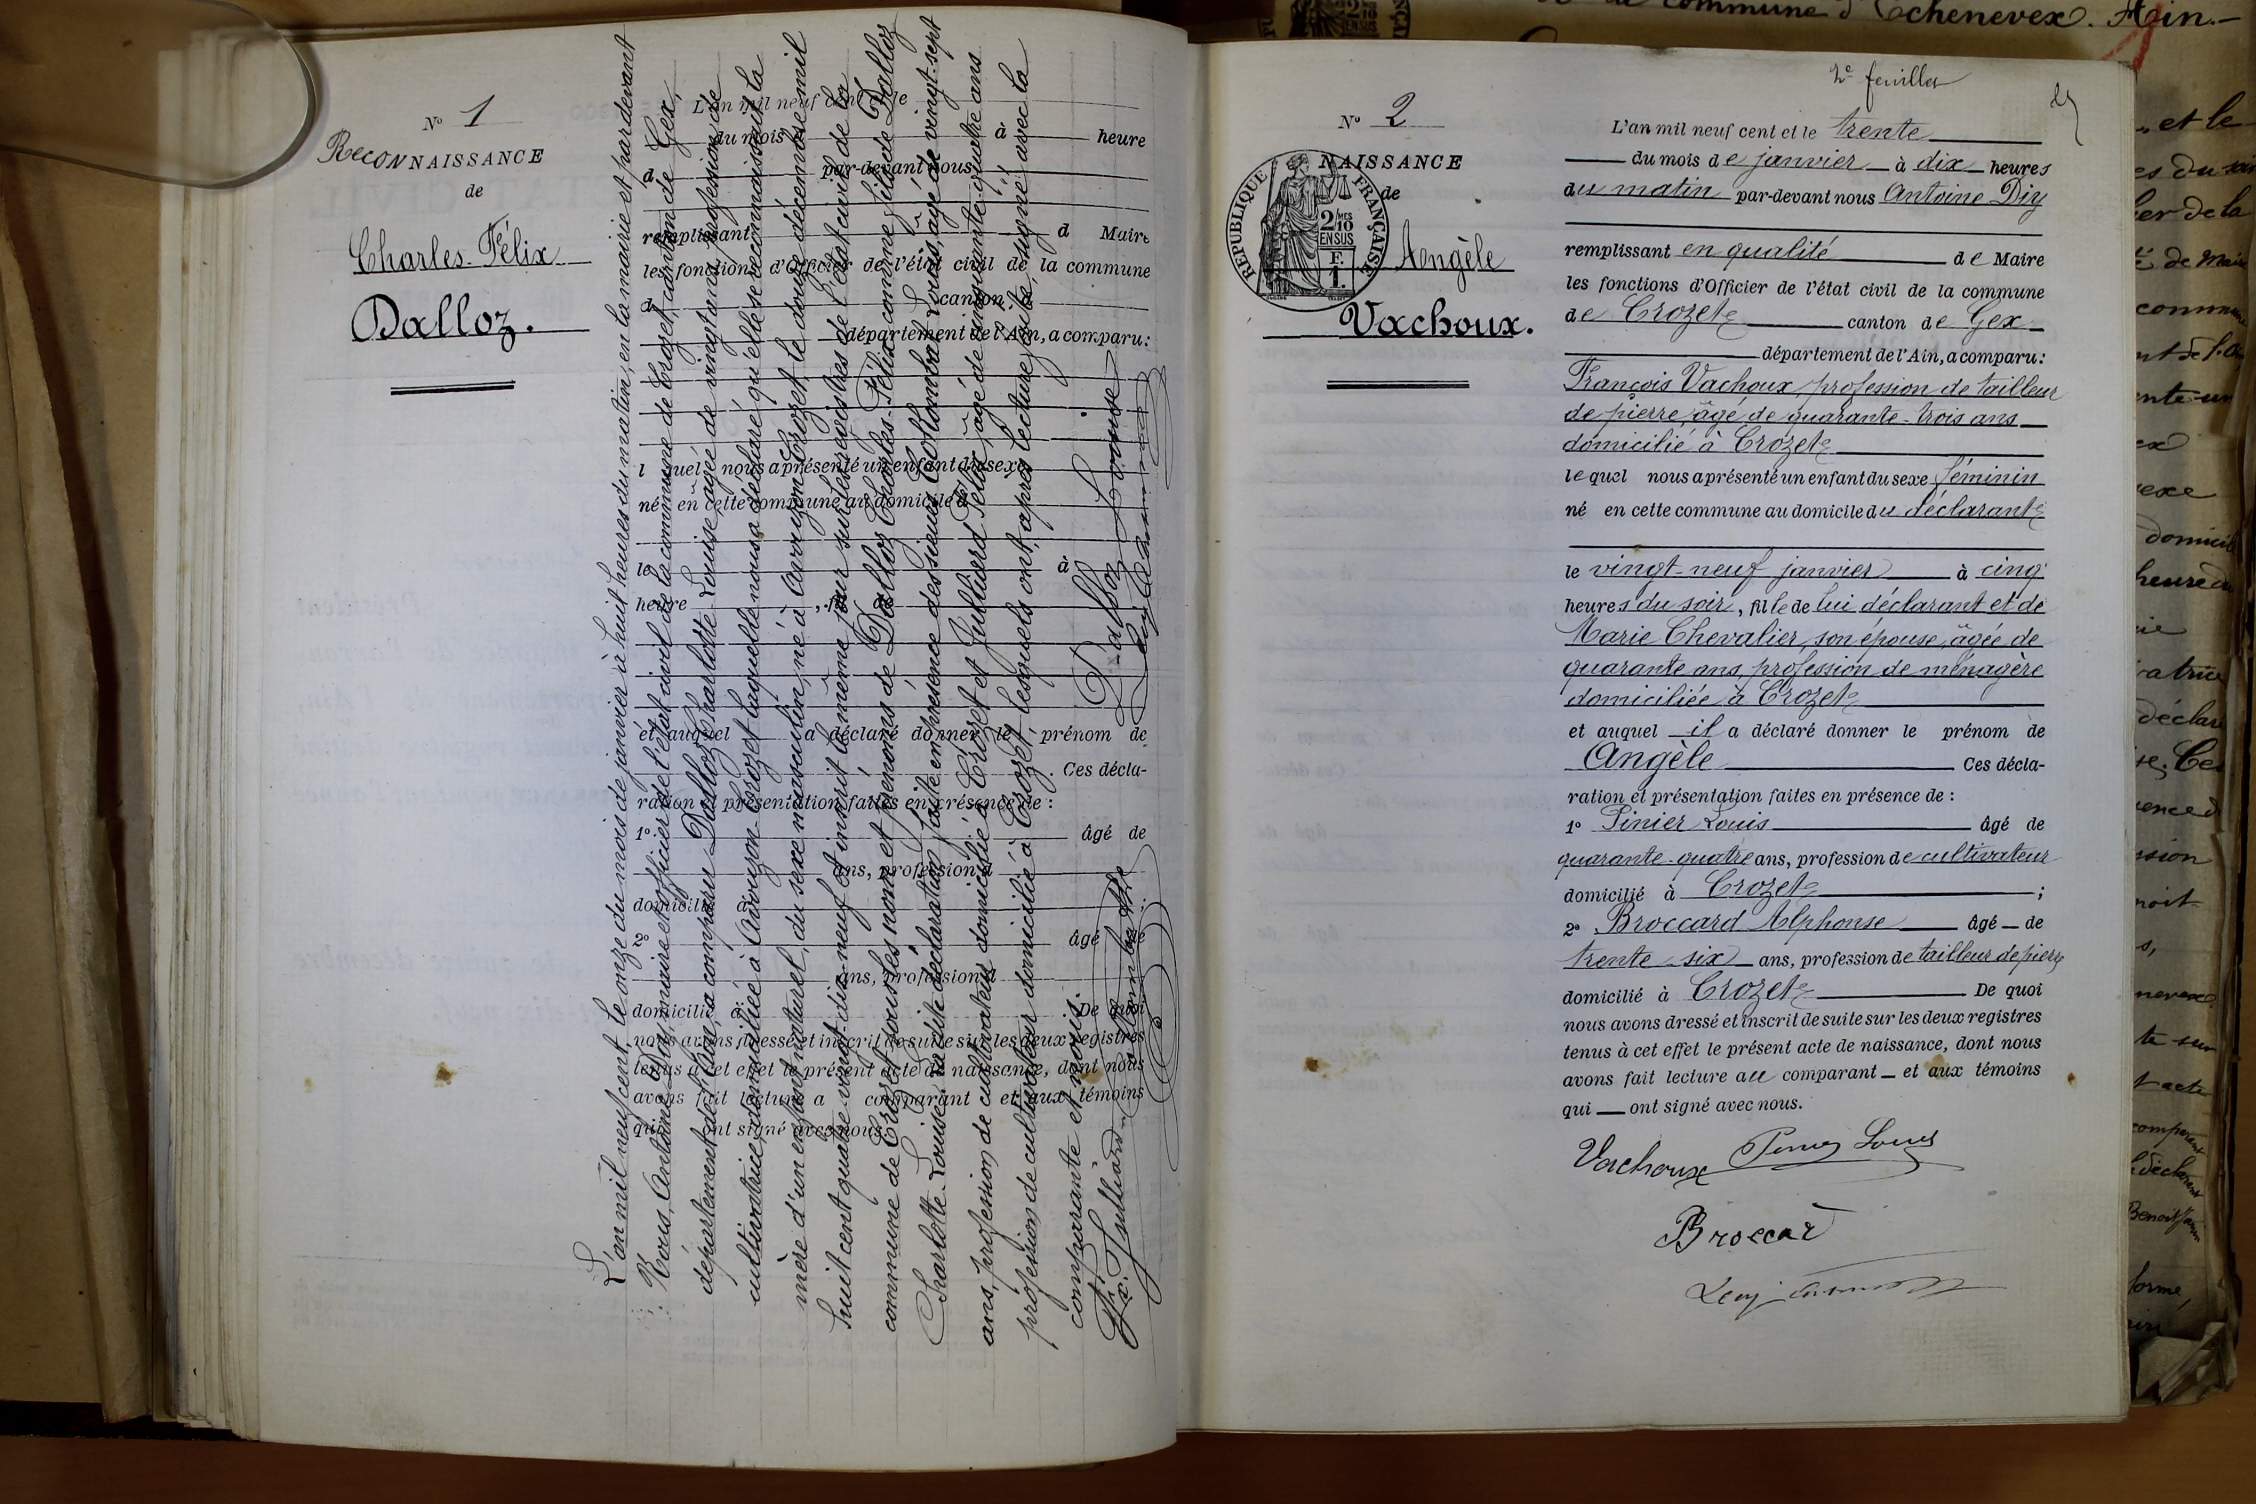 N° 1
RECONNAISSANCE
de
Charles-Félix
Dalloz.
L'an mil neuf cent, le onze du mois de janvier à huit heures du matin, en la mairie et par devant
Nous, Antoine Diy, maire et officier de l'état civil de la commune de Crozet, canton de Gex,
département de l'Ain, a comparu Dalloz Charlotte-Louise, âgée de vingt ans, profession de
cultivatrice, domiciliée à Avouzon-Crozet laquelle nous a déclaré qu'elle se reconnaissait la
mère d'un enfant naturel, du sexe masculin, né à Avouzon-Crozet le douze décembre mil
huit cent quatre-vingt-dix-neuf et inscrit le même jour sur les registres de l'état civil de la
commune de Crozet sous les nom et prénoms de Dalloz Charles-Félix comme fils de Dalloz
Charlotte-Louise. La dite déclaration faite en présence des sieurs Collombat Louis, âgé de vingt-sept
ans, profession de cultivateur domicilié à Crozet et Julliard Félix, âgé de cinquante-quatre ans
profession de cultivateur domicilié à Crozet, lesquels ont, après lecture faite, signé avec la
comparante et nous.
Dalloz Louise
Fx. Julliard
Collombat
L'an mil neuf cent et le
du mois à heure
d par-devant nous
remplissant d Maire
les fonctions d'Officier de l'état civil de la commune
d canton d
département de l'Ain, a comparu:
l quel nous a présenté un enfant du sexe
né en cette commune au domicile d
le à
heure , fil de
et auquel a déclaré donner le prénom de
. Ces décla-
ration et présentation faites en présence de :
1° âgé de
ans, profession d
domicilié à ;
2° âgé de
ans, profession d
domicilié à De quoi
nous avons dressé et inscrit de suite sur les deux registres
tenus à cet effet le présent acte de naissance, dont nous
avons fait lecture a comparant et aux témoins
qui ont signé avec nous.
2e feuillet
N° 2
NAISSANCE
de
Angèle
Vachoux.
RÉPUBLIQUE FRANÇAISE
2/10 MES
EN SUS
F.
1.
L'an mil neuf cent et le trente
du mois de janvier à dix heures
du matin par-devant nous Antoine Diy
remplissant en qualité de Maire
les fonctions d'Officier de l'état civil de la commune
de Crozet canton de Gex
département de l'Ain, a comparu:
François Vachoux, profession de tailleur
de pierre, âgé de quarante-trois ans
domicilié à Crozet
lequel nous a présenté un enfant du sexe féminin
né en cette commune au domicile du déclarant
le vingt-neuf janvier à cinq
heures du soir, fille de lui déclarant et de
Marie Chevalier, son épouse, âgée de
quarante ans, profession de ménagère
domiciliée à Crozet
et auquel il a déclaré donner le prénom de
Angèle Ces décla-
ration et présentation faites en présence de :
1° Pinier Louis âgé de
quarante-quatre ans, profession de cultivateur
domicilié à Crozet ;
2° Broccard Alphonse âgé de
trente six ans, profession de tailleur de pierre
domicilié à Crozet De quoi
nous avons dressé et inscrit de suite sur les deux registres
tenus à cet effet le présent acte de naissance, dont nous
avons fait lecture au comparant et aux témoins
qui ont signé avec nous.
Vachoux Pinier Louis
Broccar
commune d'Echenevex. Ain.
et le
es du soir
er de la
de Maire
commune
domicile
heure du
déclaré